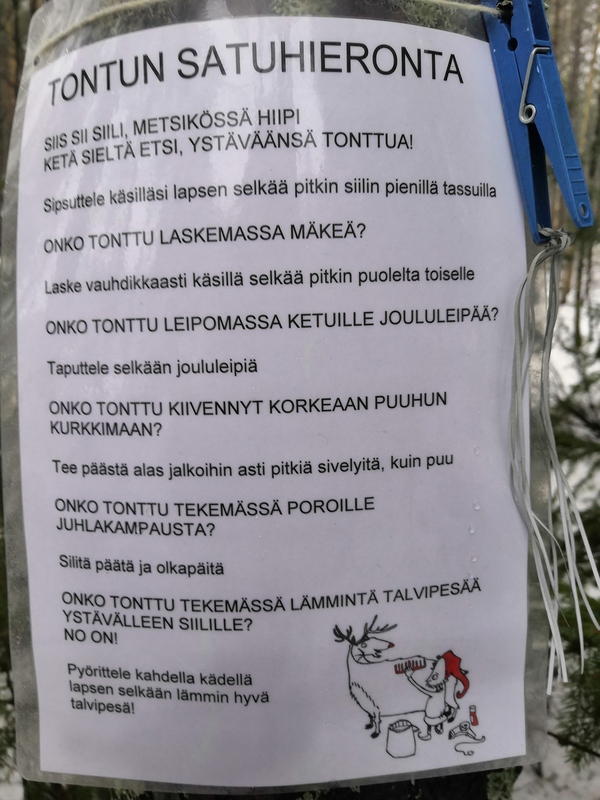 TONTUN SATUHIERONTA
SIIS SII SIILI, METSIKÖSSÄ HIIPI
KETÄ SIELTÄ ETSI, YSTÄVÄÄNSÄ TONTTUA!
Sipsuttele käsilläsi lapsen selkää pitkin siilin pienillä tassuilla
ONKO TONTTU LASKEMASSA MÄKEÄ?
Laske vauhdikkaasti käsillä selkää pitkin puolelta toiselle
ONKO TONTTU LEIPOMASSA KETUILLE JOULULEIPÄÄ?
Taputtele selkään joululeipiä
ONKO TONTTU KIIVENNYT KORKEAAN PUUHUN
KURKKIMAAN?
Tee päästä alas jalkoihin asti pitkiä sivelyitä, kuin puu
ONKO TONTTU TEKEMÄSSÄ POROILLE
JUHLAKAMPAUSTA?
Silitä päätä ja olkapäitä
ONKO TONTTU TEKEMÄSSÄ LÄMMINTÄ TALVIPESÄÄ
YSTÄVÄLLEEN SIILILLE?
NO ON!
Pyörittele kahdella kädellä
lapsen selkään lämmin hyvä
talvipesä!